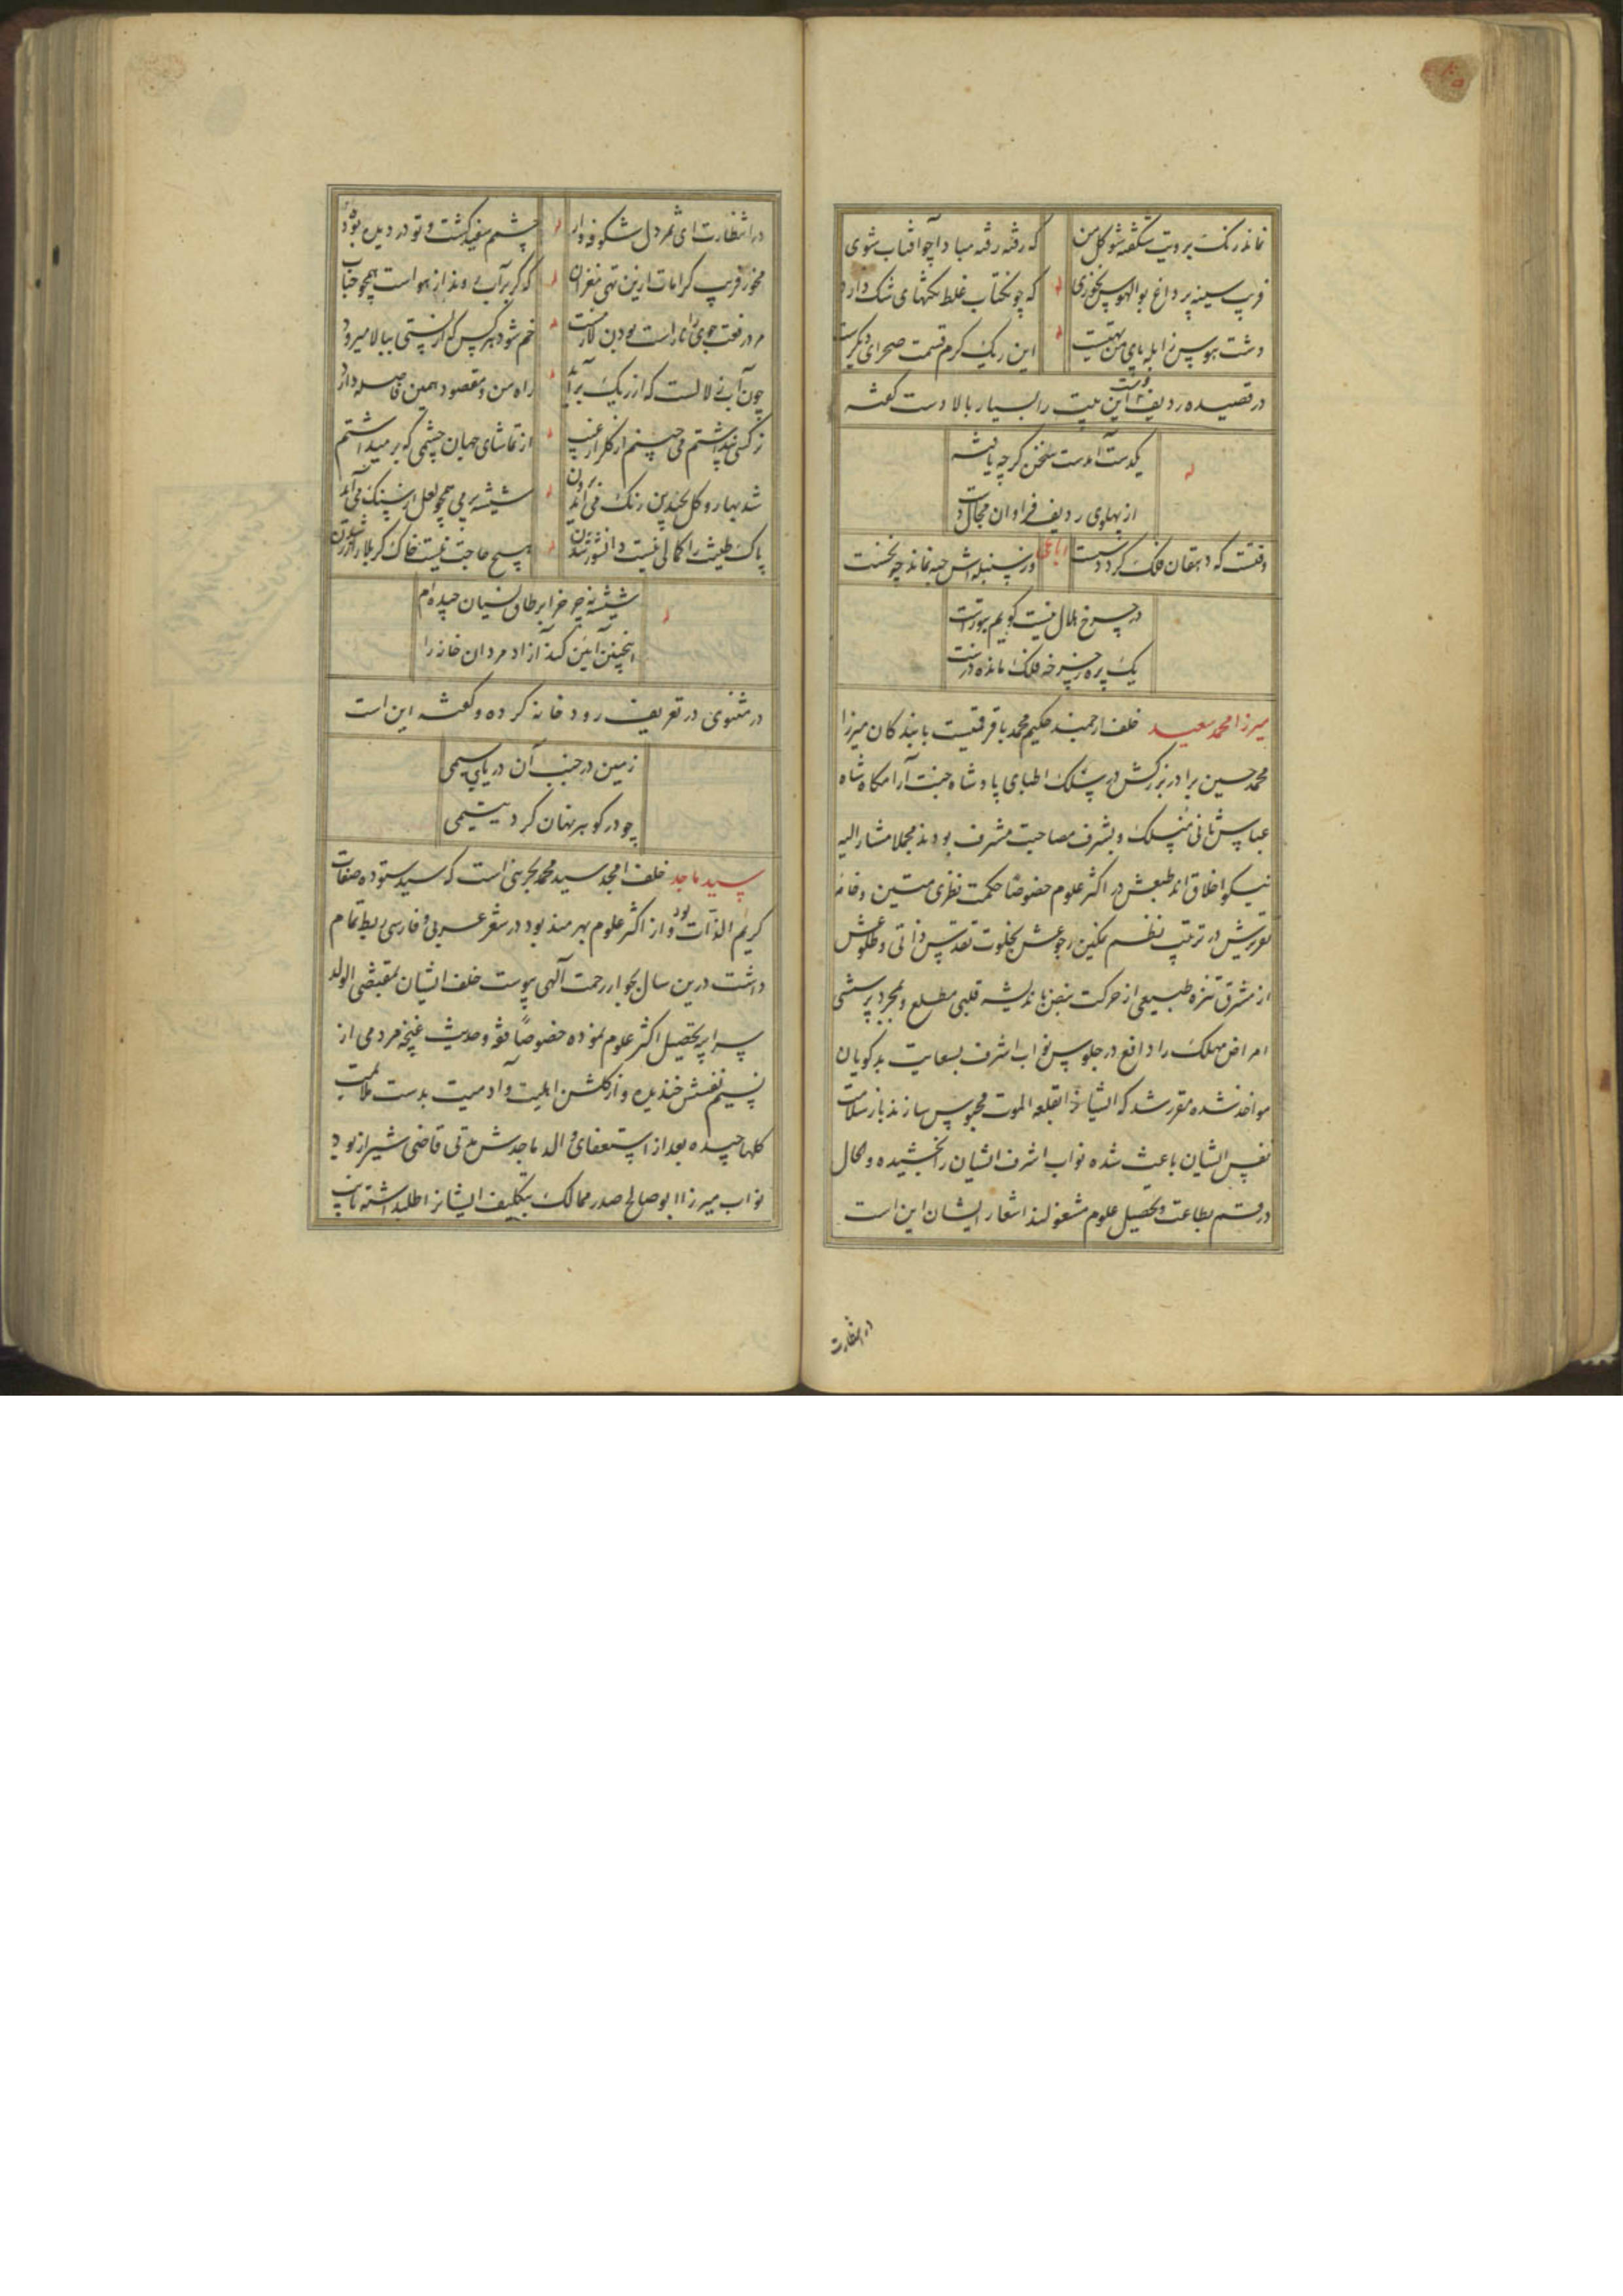 نماند رنگ برویت شکفته شو گل من که رفته رفته مبادا چو آفتاب شوی
فریب سینه پر داغ بوالهوس نخوری که چون کتاب غلط نکتهای شک دارد
دشت هوس ز ابله پای من تهیست این ریک کرم قسمت صحرای دیگرست
در قصیده ردیف دست این بیت را بسیار بالا دست گفته
یکدست آمدست سخن گرچه یافته
از پهلوی ردیف فراوان مجال دست
وقتست که دهقان فلک گردد سست رباعی در سنبله اش حبه نماند چو نخست
در چرخ هلال نیست گویم بتو راست
یک پره ز چرخه فلک مانده درست
میرزا محمد سعید خلف ارجمند حکیم محمد باقر قمیست بابندکان میرزا
محمد حسین برادر بزرکش در سلک اطبای پادشاه جنت آرامکاه شاه
عباس ثانی منسلک و بشرف مصاحبت مشرف بودند مجملا مشار الیه
نیکو اخلاق اند طبعش در اکثر علوم خصوصًا حکمت نظری متین و خامه
تقریرش در ترتیب نظم نمکین رجوعش بخلوت تقدس ذاتی و طلوعش
از مشرق تنزه طبیعی از حرکت نبض باندیشه قلبی مطلع و بمجرد پرسشی
امراض مهلک را دافع در جلوس نواب اشرف بسعایت بدکویان
مواخذ شده مقرر شد که ایشانرا در قلعه الموت محبوس سازند باز سلامت
نفس ایشان باعث شده نواب اشرف ایشان را بخشیده و الحال
در قم بطاعت و تحصیل علوم مشغولند اشعار ایشان این است
در انتظارت
در انتظارت ای ثمر دل شکوفه وار چشمم سفید کشت و تو در دیده بوده
مخور فریب کرامات ازین تهی مغزان که گر بر آب روند از هواست همچو حباب
در رفعت جوی را راست بودن لازمست خم شود هر کس که از پستی ببالا میرود
چون آب زلالست که از ریک برآید راه من و مقصود همین فاصله دارد
نرکسی نپداشتم می چینم از گلزار غیب از تماشای جهان چشمی که بر میداشتم
شد بهار و گل بچندین رنگ می آید برون شیشه پر می همچو لعل از سنگ می آید برون
پاک طینت را کمالی نیست دانشور شدن هیچ حاجت نیست خاک کربلا را زر شدن
شیشه نه چرخ را بر طاق نسیان چیده ام
اینچنین آیین کند آزاد مردان خانه را
در مثنوی در تعریف رودخانه کرده و گفته این است
زمین در جنب آن دریای سیمی
چو در گوهر نهان کرد یتیمی
سید ماجد خلف امجد سید محمد بحرینی است که سید ستوده صفات
کریم الذات بود و از اکثر علوم بهرمند بود در شعر عربی و فارسی ربط تمام
داشت درین سال بجوار رحمت آلهی پیوست خلف ایشان بمقتضی الولد
سر ابیه تحصیل اکثر علوم نموده خصوصًا فقه و حدیث غنچه مردمی از
نسیم نفسش خندیده و از گلشن اهلیت و آدمیت بدست ملایمت
گلها چیده بعد از استعفای والد ماجدش مدتی قاضی شیراز بود
نواب میرزا ابو صالح صدر ممالک بتکلیف ایشانرا طلب داشته نایب